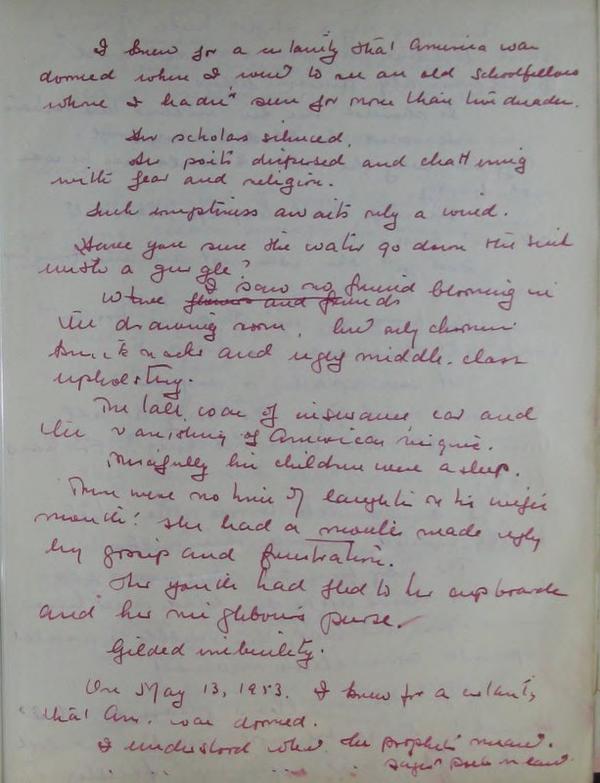 I knew for a certainty that America was
doomed when I went to see an old schoolfellow
whom I hadn't seen for more than two decades.
The scholars silenced.
The poets dispersed and chattering
with fear and religion.
Such emptiness awaits only a wind.
Have you seen the water go down the sink
with a gurgle?
I saw no friend blooming in
where flowers and friends
the drawing room, but only chromium
knick knacks and ugly middle-class
upholstery.
The talk was of insurance, car and
the vanishing of American
Mercifully his children were asleep.
There were no lines of laughter on his wife's
mouth: she had a mouth made ugly
by gossip and frustration.
Her youth had fled to her cupboards
and her neighbour's purse.
Gilded imbecility.
On May 13, 1953. I knew for a certainty
that Am. was doomed.
I understood what the prophets mean.
mean